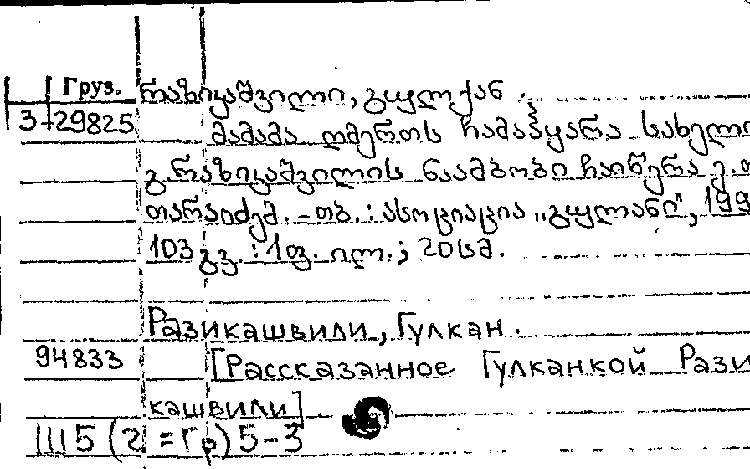 Груз. რაზიკაშვილი, გულქან.
3-29825 მამამა ღმერთს ჩამააყარა სახელი
გ. რაზიკაშვილის ნაამბობი ჩაიწერა
თარაიძემ. - თბ. : ასოციაცია „გულანი", 199
103 გვ. : 1 ფ. ილ. ; 20 სმ.
Разикашвили, Гулкан.
94833 [Рассказанное Гулканкой Рази
кашвили]
1115 (2=Гр) 5-3